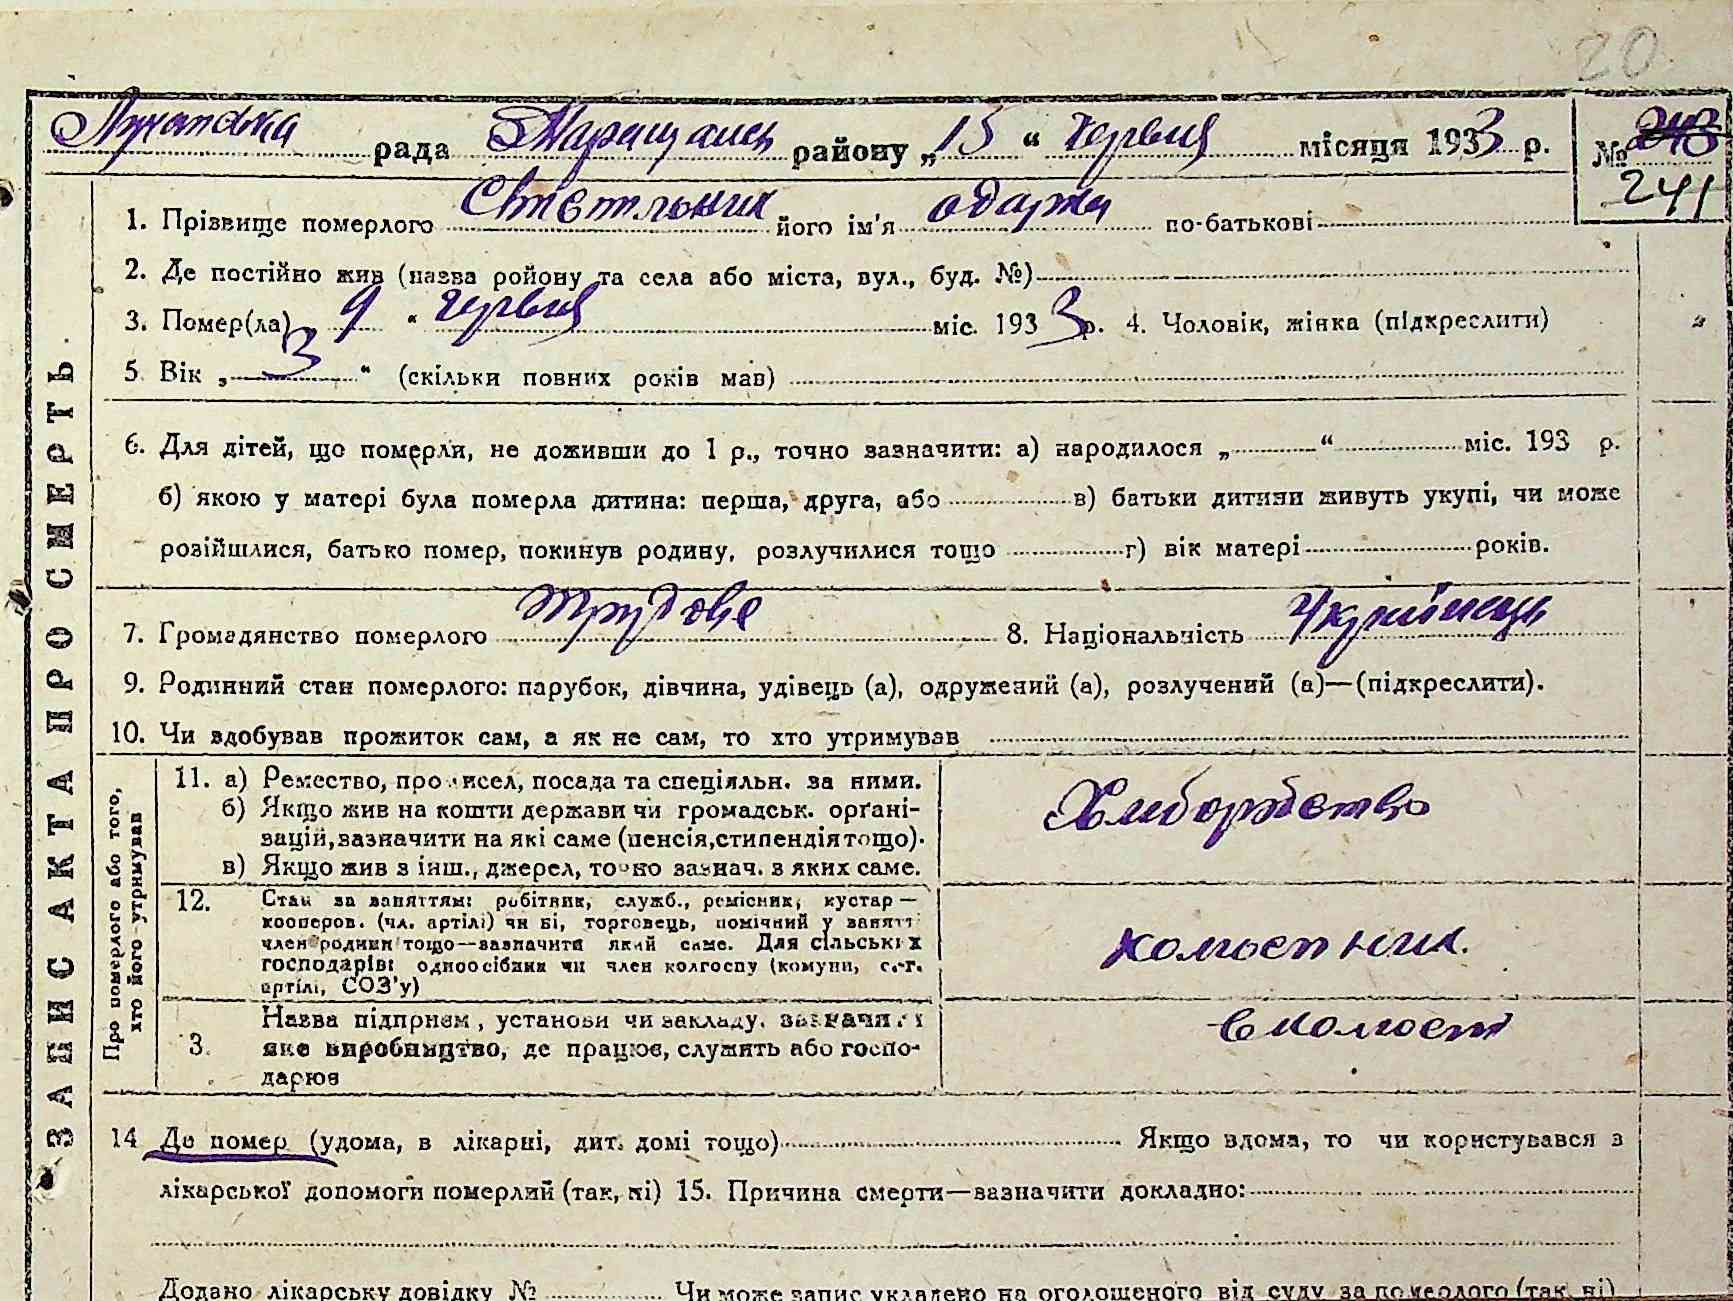 20
Лукянівка рада Таращанськ району „15“ червня місяця 1933 р. № 243
241
1. Прізвище померлого його ім'я Одарка по-батькові
2. Де постійно жив (назва ройону та села або міста, вул., буд. №)
3. Помер(ла) „9“ червня міс. 1933 р. 4. Чоловік, жінка (підкреслити)
5. Вік „3“ (скільки повних років мав)
6. Для дітей, що померли, не доживши до 1 р., точно зазначити: а) народилося „ “ міс. 193 р.
б) якою у матері була померла дитина: перша, друга, або в) батьки дитини живуть укупі, чи може
розійшлися, батько помер, покинув родину, розлучилися тощо г) вік матері років.
7. Громадянство померлого трудове 8. Національність Українець
9. Родинний стан померлого: парубок, дівчина, удівець (а), одружений (а), розлучений (а)—(підкреслити).
10. Чи здобував прожиток сам, а як не сам, то хто утримував
ЗАПИС АКТА ПРО СМЕРТЬ
Про померлого або того,
хто його утримував
11. а) Ремество, про исел, посада та спеціяльн. за ними.
б) Якщо жив на кошти держави чи громадськ. орґані-
зацій, зазначити на які саме (пенсія, стипендія тощо).
в) Якщо жив з інш., джерел, точно зазнач. з яких саме.
Хлиборобство
12. Стан за заняттям: робітник, служб., ремісник, кустар—
кооперов. (чл. артілі) чи ні, торговець, помічний у занятт
член родини тощо—зазначити який саме. Для сільських
господарів: одноосібник чи член колгоспу (комуни, с.-г.
артілі, СОЗ'у)
колгоспник.
3. Назва підприєм, установи чи закладу, зазначити
яке виробництво, де працює, служить або госпо-
дарює
в колгоспі
14 Де помер (удома, в лікарні, дит. домі тощо) Якщо вдома, то чи користувався з
лікарської допомоги померлий (так, ні) 15. Причина смерти—зазначити докладно:
Додано лікарську довідку № Чи може запис укладено на оголошеного від суду за померлого (так, ні)